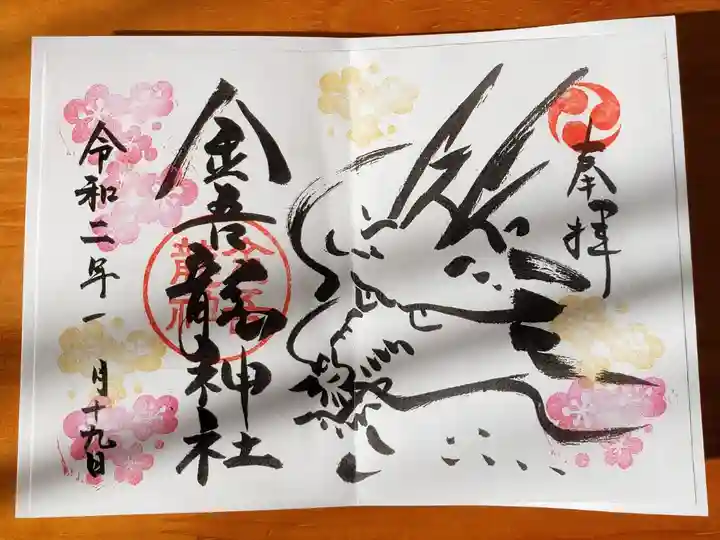 奉拝
金吾龍神社
令和二年一月十九日